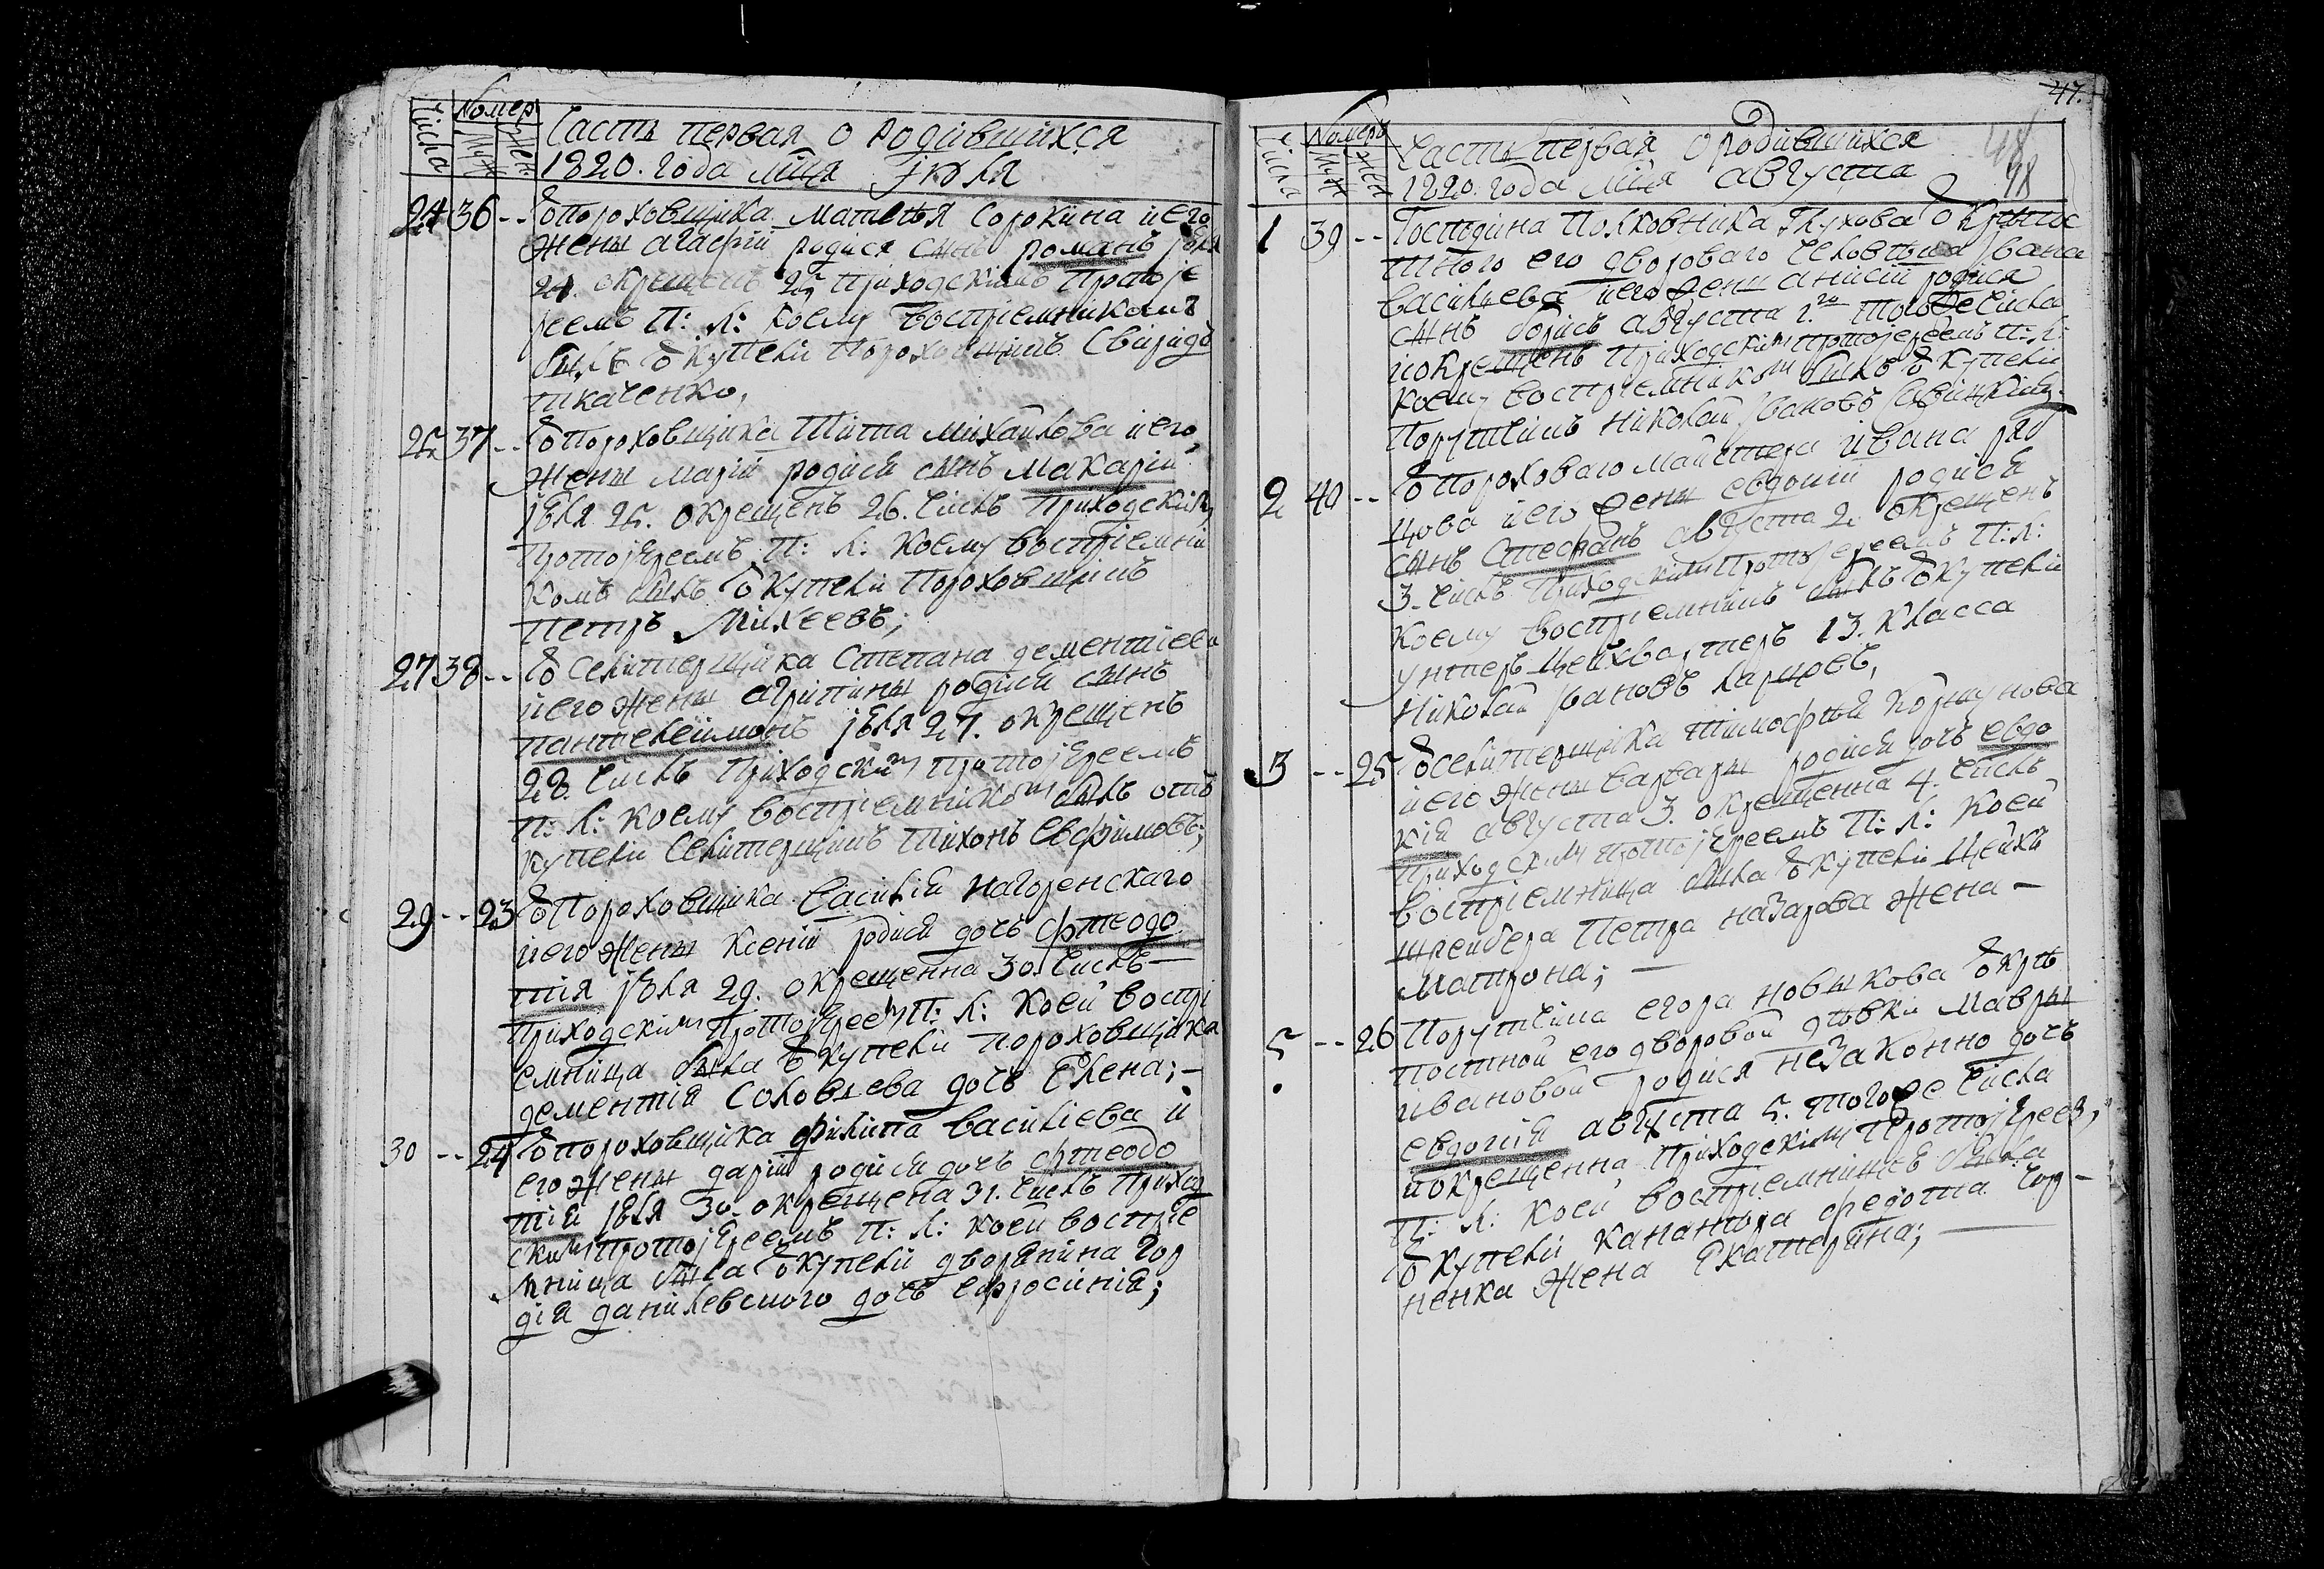 Числа
Номер
Муж
Жен
Часть первая о родившихся
1820. года мца Iюля
24 36 -- Ѿ пороховщика матвѣя Сорокина и его
жены агафiи родися сынъ романъ iюля
24. окрещенъ 25 приходскiмъ протоiе
реемъ П: Л: коему воспрiемникомъ
былъ ѿ купели пороховщикъ Свиридъ
ткаченко,
25 37 -- Ѿ пороховщика Тита михайлова и его
жены марiи родися сынъ макарiй
iюля 25. окрещенъ 26. числъ приходскiмъ
протоiереемъ П: Л: коему воспрiемни
комъ былъ ѿ купели пороховщикъ
петръ Михеевъ;
27 38 -- Ѿ Селитерщика Степана дементiева
и его жены агрипины родися сынъ
пантелеимонъ iюля 27. окрещенъ
28. числъ приходскимъ протоiереемъ
П: Л: коему воспрiемникомъ былъ отъ
купели Селитерщикъ тихонъ Евфимовъ;
29 -- 23 Ѿ Пороховщика Василiя нагоренскаго
и его жены Ксенiи родися дочь фтеодо
тiя iюля 29. окрещенна 30. числъ —
приходскiмъ протоiереемъ П: Л: коей воспрi
емница была ѿ купели пороховщика
дементiя Соловьева дочь Елена; —
30 -- 24 Ѿ пороховщика филипа василiева и
его жены дарiи родися дочь фтеодо
тiя iюля 30. окрещена 31. числъ приход
скимъ протоiереемъ П: Л: коей воспрiе
мница была ѿ купели дворянина гор
дiя данилевского дочь ефросинiя;
47.
48
48
Числа
Номеръ
Муж
Жен
Часть первая о родившихся
1820. года мца августа
1 39 -- Господина Полковника Глухова ѿ крѣпос
тного его двороваго человѣка Iвана
Васильева и его жены анисiи родися
сынъ борисъ августа 1.го того же числа
и окрещенъ приходскимъ протоiереемъ П: Л:
коему воспрiемникомъ былъ ѿ купели
порутчикъ николай Iвановъ Савицкiй.
2 40 -- Ѿ пороховаго майстера ивана ряб
цова и его жены евдокiи родися
сынъ Стефанъ августа 2. окрещенъ
3. числъ приходскимъ протоiереемъ П: Л:
коему воспрiемникъ былъ ѿ купели
унтеръ цейхвартеръ 13. класса
николай Iвановъ карцовъ,
3 -- 25 Ѿ селитерщика тимофѣя коршунова
и его жены варвары родися дочь евдо
кiя августа 3. окрещенна 4. числъ
приходскимъ протоiереемъ П: Л: коей
воспрiемница была ѿ купели цейхъ
шрейбера Петра назарова жена —
матрона; —
5 -- 26 Порутчика егора новикова ѿ крѣ
постной его дворовой дѣвки мавры
ивановой родися незаконно дочь
евдокiя августа 5. того же числа
и окрещенна приходскимъ протоiереемъ
П: Л: коей воспрiемницѣ была
ѿ купели кананыра федота чор —
ненка жена Екатерина; —